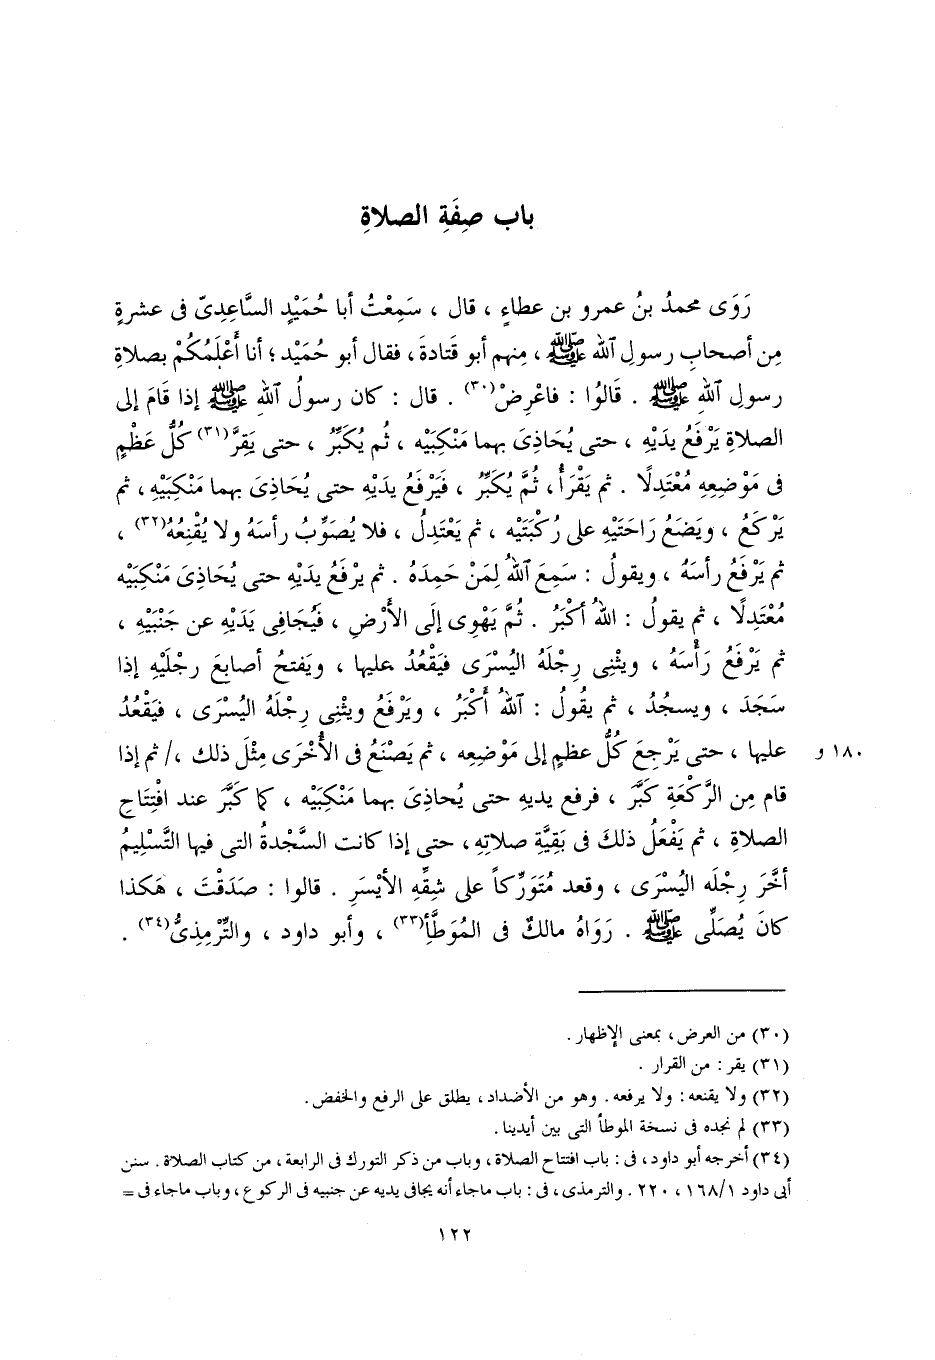 باب صِفَةِ الصلاةِ
رَوَى محمدُ بنُ عمرو بن عطاءٍ ، قال ، سَمِعْتُ أبا حُمَيْدٍ السَّاعِدِىّ فى عشرةٍ
مِن أصحابِ رسولِ ٱللهِ ﷺ ، مِنهم أبو قَتادةَ ، فقال أبو حُمَيْد ؛ أنا أَعْلَمُكُمْ بصلاةِ
رسولِ ٱللهِ ﷺ . قَالُوا : فاعْرِضْ(٣٠) . قال : كان رسولُ ٱللهِ ﷺ إذا قَامَ إلى
الصلاةِ يَرْفَعُ يدَيْهِ ، حتى يُحَاذِىَ بهما مَنْكِبَيْه ، ثُم يُكَبِّرُ ، حتى يَقِرَّ(٣١) كُلُّ عَظْمٍ
فى مَوْضِعِه مُعْتَدِلًا . ثم يَقْرَأُ ، ثُمَّ يُكَبِّرُ ، فَيَرْفَعُ يدَيْهِ حتى يُحَاذِىَ بهما مَنْكِبَيْهِ ، ثم
يَرْكَعُ ، ويَضَعُ رَاحَتَيْهِ على رُكْبَتَيْه ، ثم يَعْتَدِلُ ، فلا يُصَوِّبُ رأسَهُ ولا يُقْنِعُهُ(٣٢) ،
ثم يَرْفَعُ رأسَهُ ، ويقولُ : سَمِعَ ٱللهُ لِمَنْ حَمِدَهُ . ثم يرْفَعُ يديْهِ حتى يُحَاذِىَ مَنْكِبَيْه
مُعْتَدِلًا ، ثم يقولُ : اللهُ أكْبَرُ . ثُمَّ يَهْوِى إلَى الأَرْضِ ، فَيُجَافِى يَدَيْهِ عن جَنْبَيْهِ ،
ثم يَرْفَعُ رَأْسَهُ ، ويثْنِى رِجْلَهُ اليُسْرَى فيَقْعُدُ عليها ، ويَفتحُ أصابعَ رجْلَيْهِ إذا
سَجَدَ ، ويسجُدُ ، ثم يقُولُ : ٱللهُ أَكْبَرُ ، ويَرْفَعُ ويثْنِى رِجْلَهُ اليُسْرَى ، فيَقْعُدُ
عليها ، حتى يَرْجِعَ كُلُّ عظمٍ إلى مَوْضِعِه ، ثم يَصْنَعُ فى الأُخْرَى مِثْلَ ذلك ،/ ثم إذا ١٨٠ و
قام مِن الرَّكْعَةِ كَبَّرَ ، فرفع يديهِ حتى يُحاذِىَ بهما مَنْكِبَيْه ، كما كَبَّرَ عند افْتِتَاحِ
الصلاةِ ، ثم يَفْعَلُ ذلكَ فى بَقِيَّةِ صلاتِه ، حتى إذا كانت السَّجْدةُ التى فيها التَّسْلِيمُ
أخَّرَ رِجْلَه اليُسْرَى ، وقعد مُتَوَرِّكاً على شِقِّهِ الأيْسَرِ . قالوا : صَدَقْتَ ، هَكذا
كانَ يُصَلِّى ﷺ . رَوَاهُ مالكٌ فى المُوَطَّأِ(٣٣) ، وأبو داود ، والتِّرْمِذِىُّ(٣٤) .
(٣٠) من العرض ، بمعنى الإظهار .
(٣١) يقر : من القرار .
(٣٢) ولا يقنعه : ولا يرفعه . وهو من الأضداد ، يطلق على الرفع والخفض .
(٣٣) لم نجده فى نسخة الموطأ التى بين أيدينا .
(٣٤) أخرجه أبو داود ، فى : باب افتتاح الصلاة ، وباب من ذكر التورك فى الرابعة ، من كتاب الصلاة . سنن
أبى داود ١/١٦٨ ، ٢٢٠ . والترمذى ، فى : باب ماجاء أنه يجافى يديه عن جنبيه فى الركوع ، وباب ماجاء فى =
١٢٢